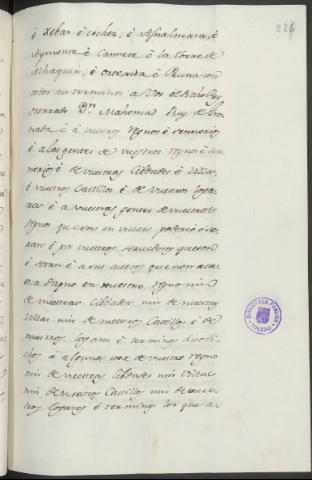 226
é Xebar é cochez, é Asnalmara, é
Aymonte é Cannete é la torre de
Alhaquin, é é Pruna con
todos sus terminos a Vos el dicho Rey
onrrado Dn. Mahomad Rey de Gra
nada é á vuestros Regnos é sennorios
é á las gentes de vuestros Regnos é sen
norios é de vuestras Cibdades é Villas,
é vuestros Castillos é de vuestros logares
é a vuestras gentes de vuestros
regnos que eran en vuestro poderio é
ran é por vuestros servidores que son
é seran é a sus que non
danno en nuestro regno nin
de nuestras Cibdades nin de nuestras
Villas nin de nuestros Castillos é de
nuestros logares é terminos
chos é alguna cosa de vuestro regno
nin de vuestras Cibdades nin Villas
nin de vuestros Castillos nin de vues
tros logares é terminos los que a
BIBLIOTECA PUBLICA
TOLEDO